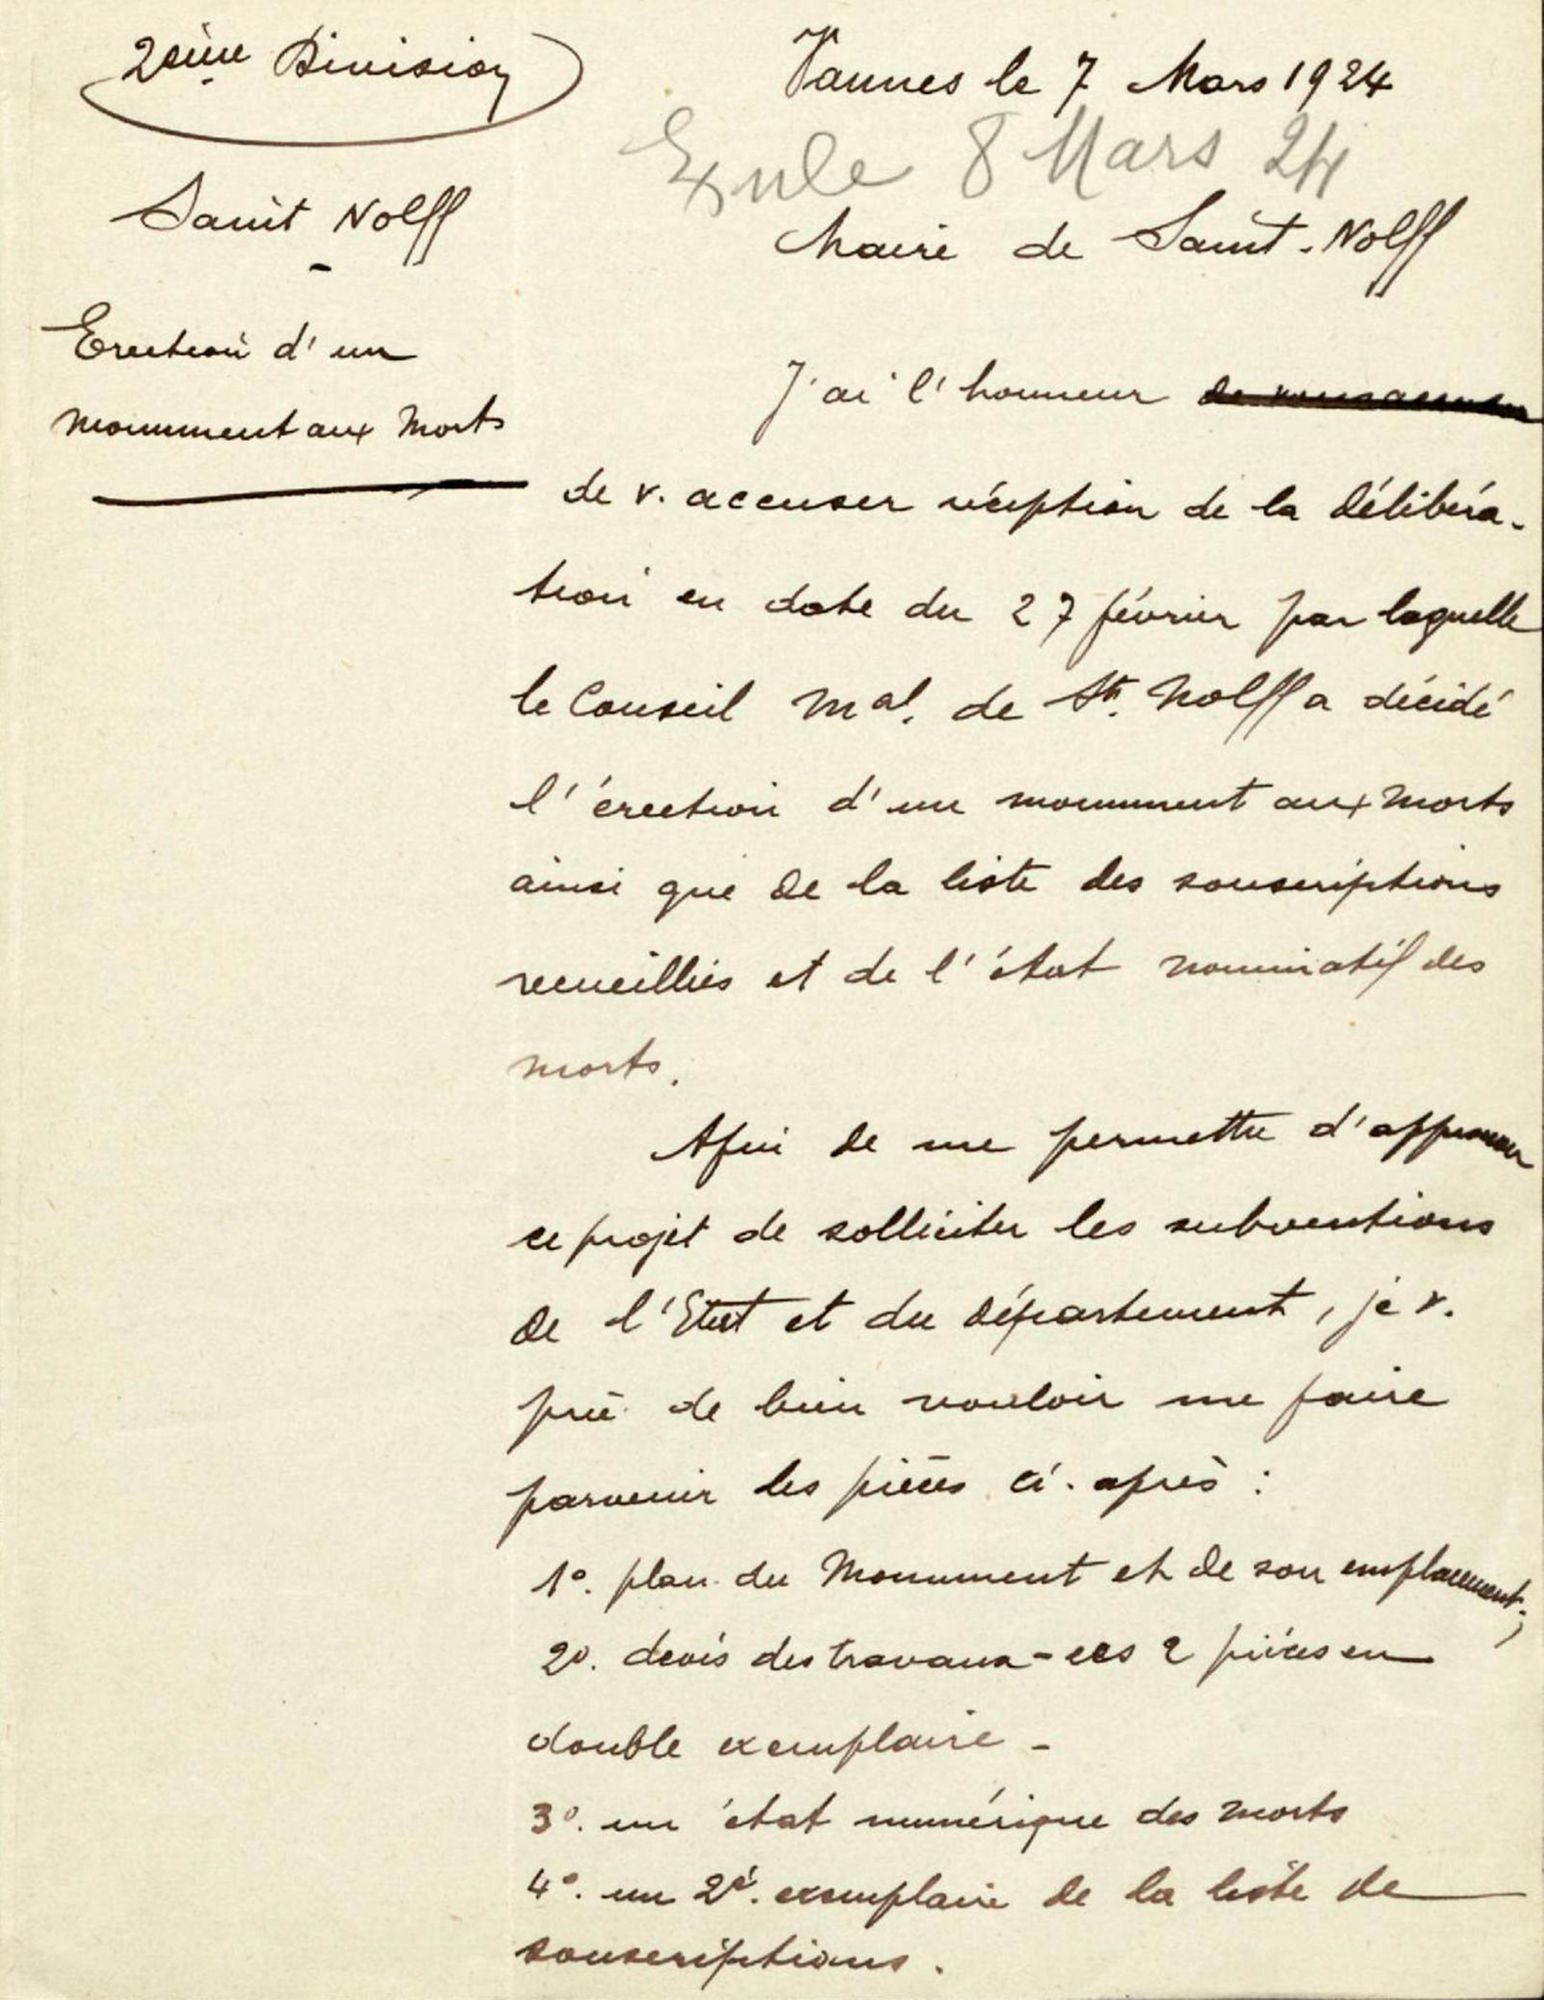 2ème Division
Saint Nolff
Erection d'un
monument aux Morts
Vannes le 7 Mars 1924
8 Mars 24
Maire de Saint-Nolff
J'ai l'honneur
de v. accuser réception de la délibéra-
tion en date du 27 février par laquelle
le Conseil mal. de St. Nolff a décidé
l'érection d'un monument aux morts
ainsi que de la liste des souscriptions
recueillies et de l'état nominatif des
morts.
Afin de me permettre d'approuver
ce projet de solliciter les subventions
de l'Etat et du département, je v.
prie de bien vouloir me faire
parvenir les pièces ci-après :
1°. plan du Monument et de son emplacement;
2°. devis des travaux - ces 2 pièces en
double exemplaire -
3°. un état numérique des morts
4°. un 2d. exemplaire de la liste de
souscriptions.